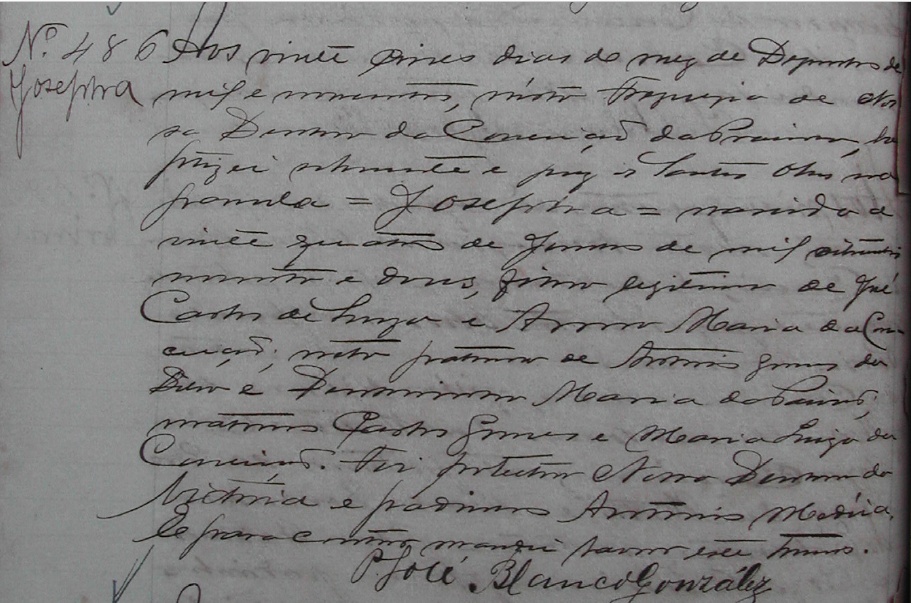 Nº 486 Aos vinte cinco dias do mez de Dezembro de
Josephina
mil e novecentos, nesta Freguezia de Nos
sa Senhora da Conceição da Praia, ba
ptizei solemnemente e puz os Santos Oleos na
parvula = Josephina = nascida a
vinte quatro de Junho de mil oitocentos
noventa e dous, filha legitima de José
Castro de Luzia e Anna Maria da Con
ceição; neta paterna de Antonio Gomes da
Silva e Maria da
maternos Castro Gomes e Maria Luiza da
Conceição. Foi protectora Nossa Senhora da
Victoria e padrinho Antonio
E para constar mandei lavrar este termo.
P. José Blanco González